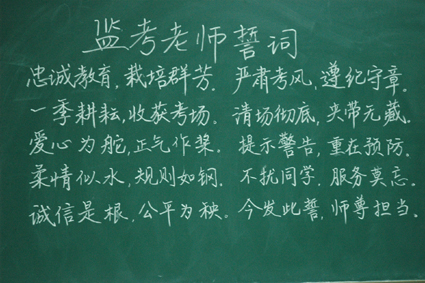 监考老师誓词
忠诚教育,栽培群芳.严肃考风,遵纪守章.
一季耕耘,收获考场.清场彻底,夹带无藏.
爱心为舵,正气作桨.提示警告,重在预防.
柔情似水,规则如钢.不扰同学.服务莫忘.
诚信是根.公平为秧.今发此誓,师尊担当.